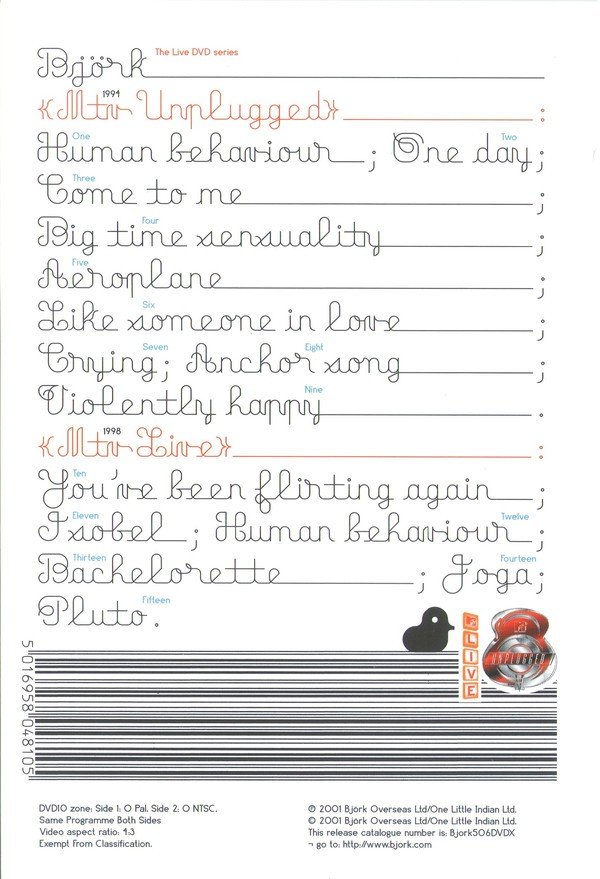 Björk The Live DVD series
1994
«Mtv Unplugged» :
One Two
Human behaviour ; One day;
Three
Come to me ;
Four
Big time sensuality ;
Five
Aeroplane ;
Six
Like someone in love ;
Seven Eight
Crying; Anchor song ;
Nine
Violently happy .
1998
«Mtv Live» :
Ten
You've been flirting again ;
Eleven Twelve
Isobel ; Human behaviour ;
Thirteen Fourteen
Bachelorette ; Joga;
Fifteen
Pluto.
LIVE
UNPLUGGED
5 016958 048105
DVD10 zone: Side 1: 0 Pal. Side 2: 0 NTSC.
Same Programme Both Sides
Video aspect ratio: 4:3
Exempt From Classification.
℗ 2001 Björk Overseas Ltd/One Little Indian Ltd.
© 2001 Björk Overseas Ltd/One Little Indian Ltd.
This release catalogue number is: Bjork506DVDX
¬ go to: http://www.bjork.com